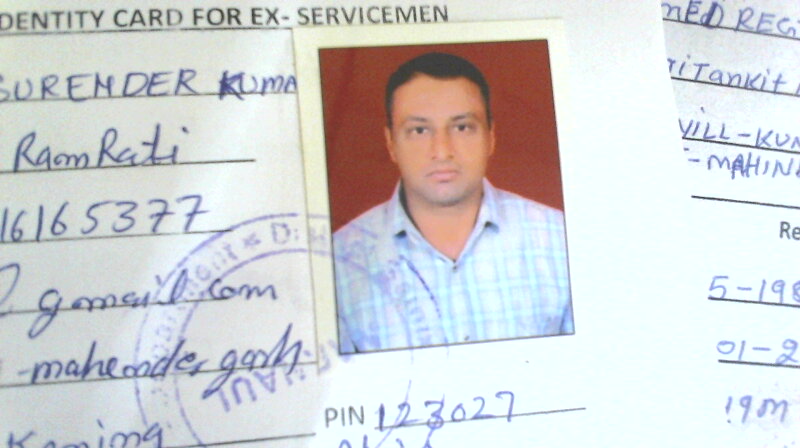 DENTITY CARD FOR EX- SERVICEMEN
SURENDER KUMA
RamRati
16165377
gmail.com
-mahendergarh
PIN 123027
MED REGI
VILL-KUN
-MAHIND
Re
5-198
01-2